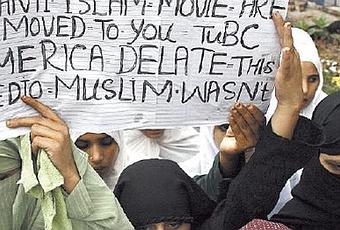 ANTI-ISLAM-MOVIE-ARE
MOVED TO YOU TUBC
MERICA DELATE-THIS
EDIO-MUSLIM-WASNT